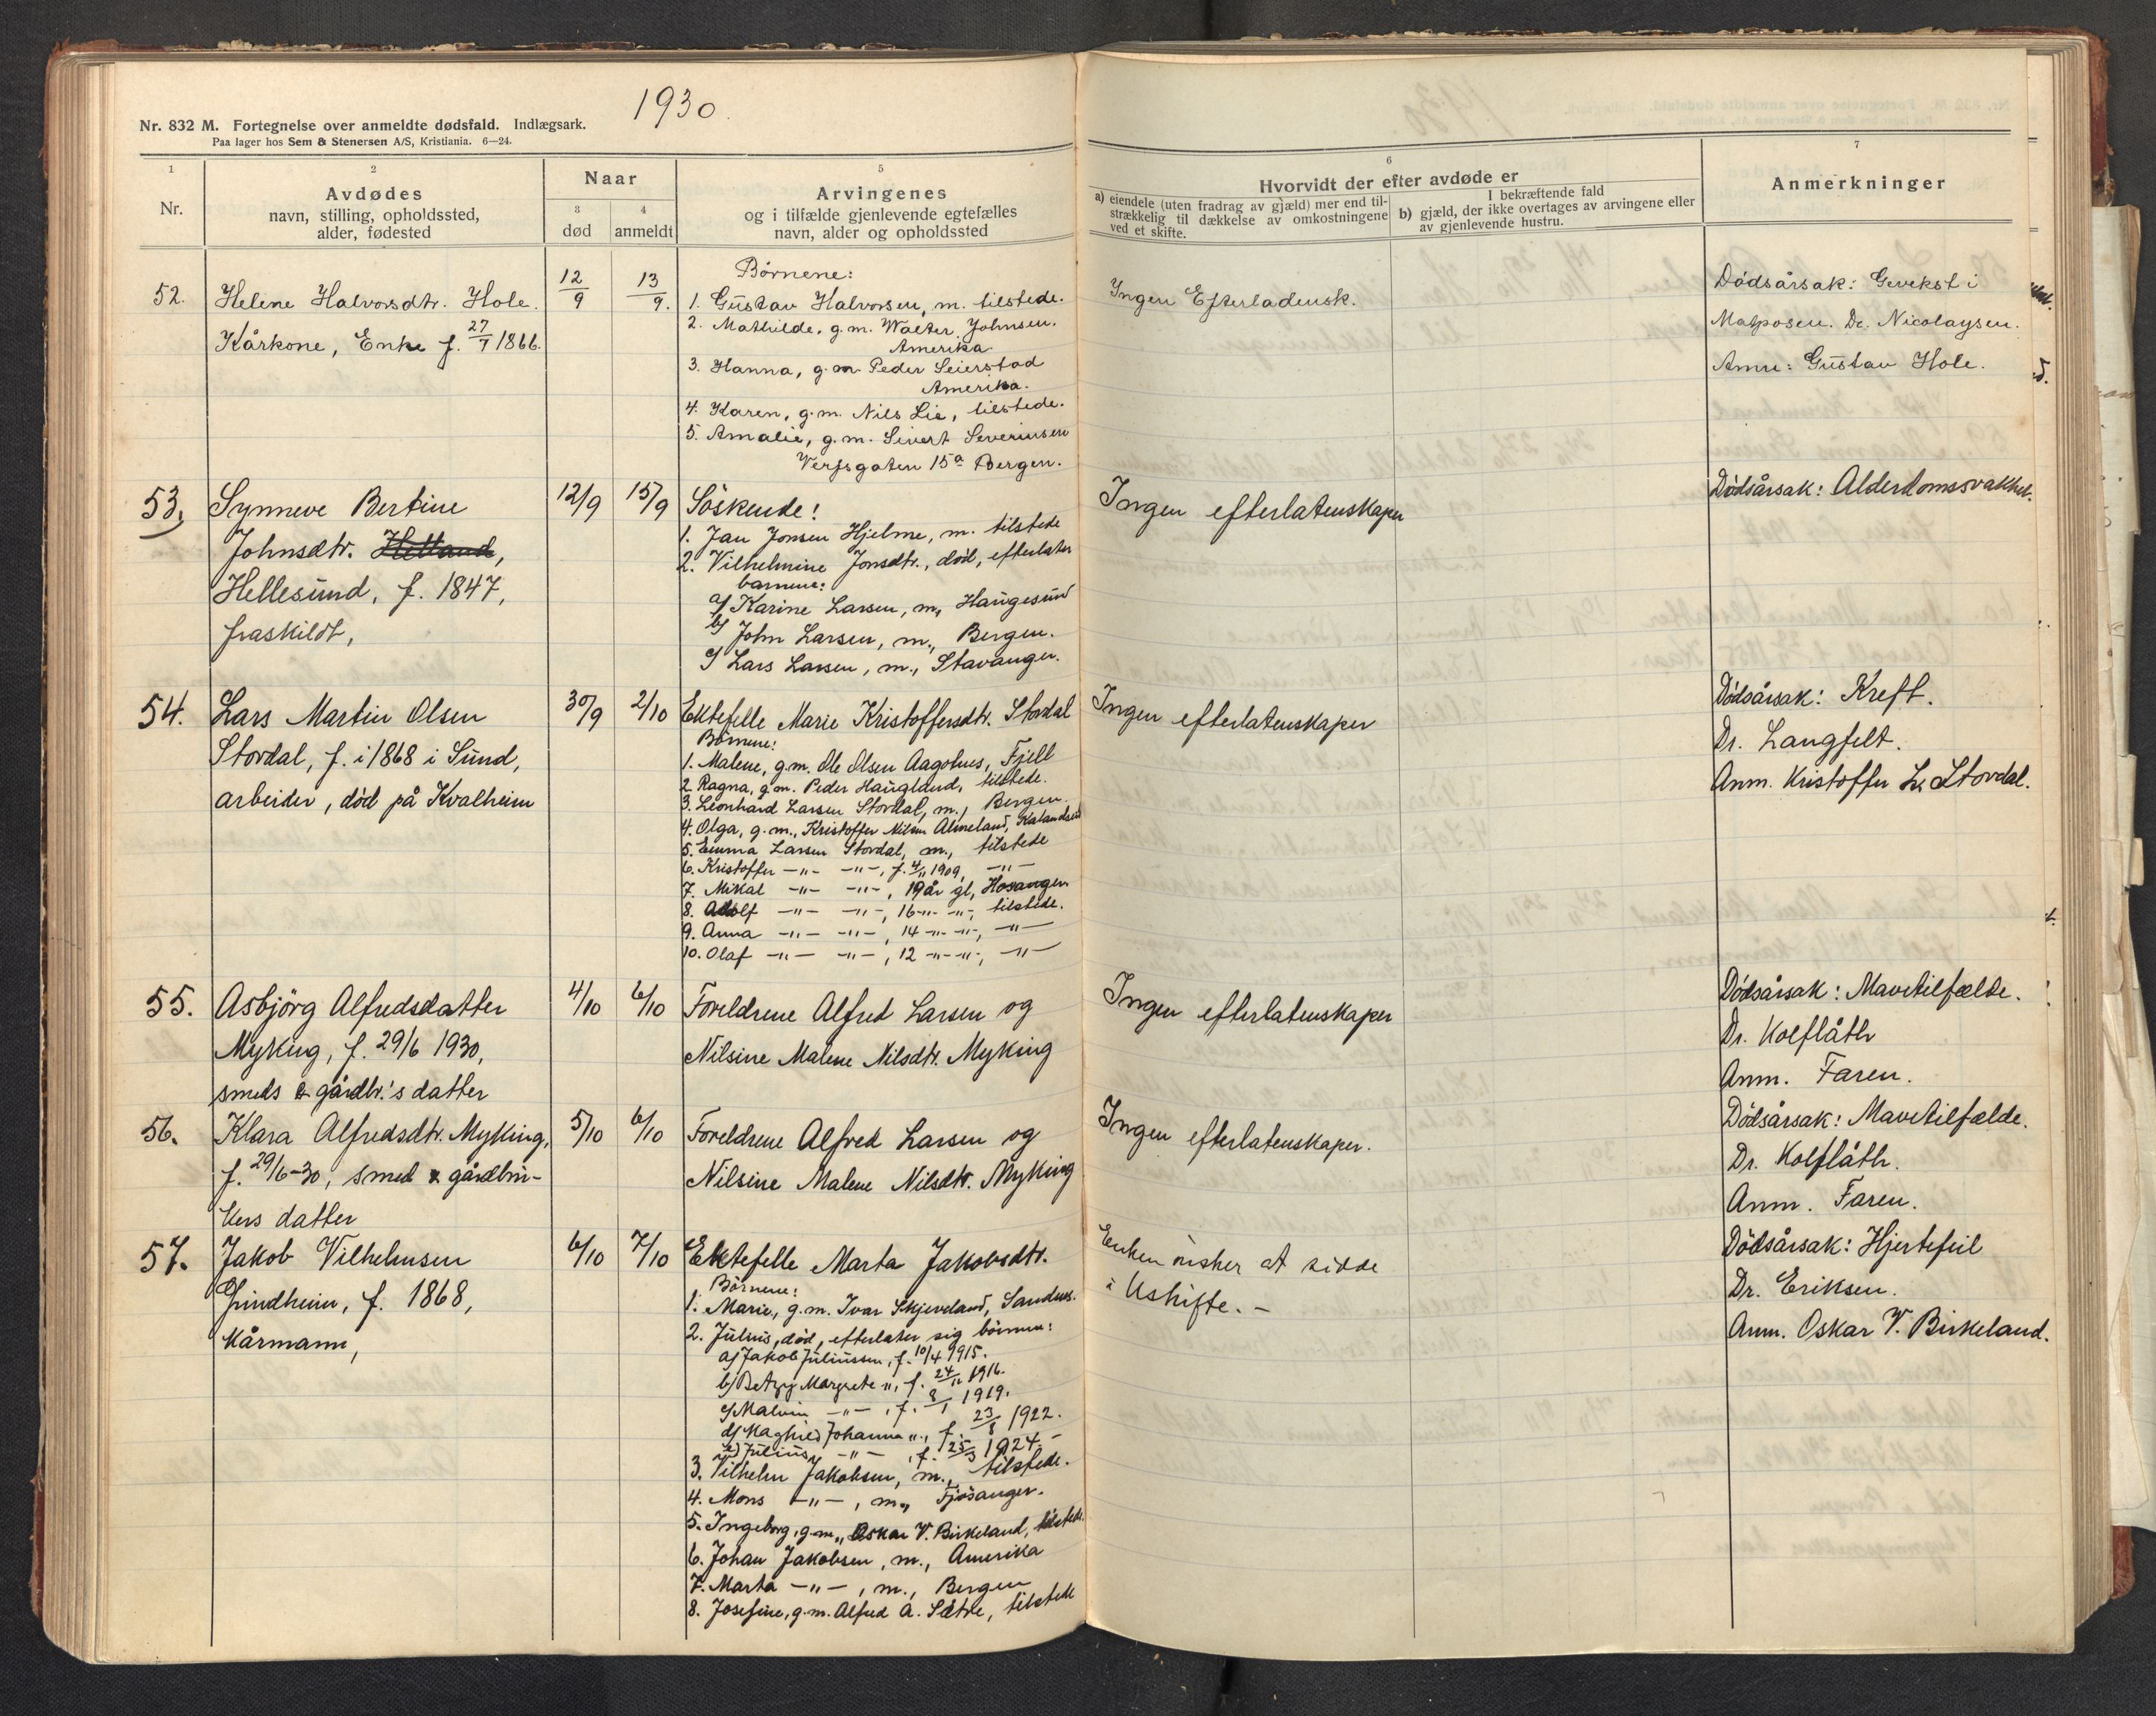 1930
Nr. 832 M. Fortegnelse over anmeldte dødsfald. Indlægsark.
Paa lager hos Sem & Stenersen A/S, Kristiania. 6—24.
1
Nr.
2
Avdødes
navn, stilling, opholdssted,
alder, fødested
Naar
3
død
4
anmeldt
5
Arvingenes
og i tilfælde gjenlevende egtefælles
navn, alder og opholdssted
6
Hvorvidt der efter avdøde er
a) eiendele (uten fradrag av gjæld) mer end til-
strækkelig til dækkelse av omkostningene
ved et skifte.
I bekræftende fald
b) gjæld, der ikke overtages av arvingene eller
av gjenlevende hustru.
7
Anmerkninger
52.
Helene Halvorsdtr. Hole.
Kårkone, Enke f. 27/7 1866.
12/9
13/9.
Børnene:
1. Gustav Halvorsen, m. tilstede.
2. Mathilde, g.m. Walter Johnsen.
Amerika.
3. Hanna, g.m. Peder Seierstad
Amerika.
4. Karen, g.m. Nils Lie, tilstede.
5. Amalie, g.m. Sivert Severinsen
Verfsgaten 15a Bergen.
Ingen Efterladensk.
Dødsårsak: Gevekst i
Matposen. Dr. Nicolaysen.
Anm: Gustav Hole.
53.
Synneve Bertine
Johnsdtr. Helland,
Hellesund, f. 1847,
fraskildt,
12/9
15/9
Søskende!
1. Jan Jonsen Hjelme, m. tilstede
2. Vilhelmine Jonsdtr., død, efterlater
barnene:
a/ Karine Larsen, m., Haugesund
b/ John Larsen, m., Bergen.
c/ Lars Larsen, m., Stavanger.
Ingen efterlatenskaper
Dødsårsak: Alderdomssvakhet.
54.
Lars Martin Olsen
Stordal, f. i 1868 i Sund,
arbeider, død på Kvalheim
30/9
2/10
Ektefelle Marie Kristoffersdtr. Stordal
Børnene:
1. Malene, g.m. Ole Olsen Aagotnes, Fjell
2. Ragna, g.m. Peder Haugland, tilstede.
3. Leonhard Larsen Stordal, m., Bergen.
4. Olga, g.m., Kristoffer Nilsen Almeland, Kalandseid
5. Emma Larsen Stordal, m., tilstede
6. Kristoffer —"— —"—, f. 4/11 1909, —"—
7. Mikal —"— —"—, 19 år gl, Hosanger
8. Adolf —"— —"—, 16 —"— —"—, tilstede.
9. Anna —"— —"—, 14 —"— —"—, —"—
10. Olaf —"— —"—, 12 —"— —"—, —"—
Ingen efterlatenskaper
Dødsårsak: Kreft.
Dr. Langfelt.
Anm. Kristoffer L. Stordal.
55.
Asbjörg Alfredsdatter
Myking, f. 29/6 1930,
smeds & gårdbr.'s datter
4/10
6/10
Foreldrene Alfred Larsen og
Nilsine Malene Nilsdtr. Myking
Ingen efterlatenskaper
Dødsårsak: Mavetilfælde.
Dr. Kolflåth
Anm. Faren.
56.
Klara Alfredsdtr. Myking,
f. 29/6-30, smed & gårdbru-
kers datter
5/10
6/10
Foreldrene Alfred Larsen og
Nilsine Malene Nilsdtr. Myking
Ingen efterlatenskaper.
Dødsårsak: Mavetilfælde.
Dr. Kolflåth.
Anm. Faren.
57.
Jakob Vilhelmsen
Grindheim, f. 1868,
Kårmann,
6/10
7/10
Ektefelle Marta Jakobsdtr.
Børnene:
1. Marie, g.m. Ivar Skjeveland, Sandnes.
2. Julius, død, efterlater sig börnene:
a/ Jakob Juliussen, f. 10/4 1915.
b/ Betzy Margrete —"—, f. 24/12 1916.
c/ Malvin —"—, f. 8/1 1919.
d/ Magnild Johanna —"—, f. 23/8 1922.
e) Julius —"—, f. 25/3 1924. —
3. Vilhelm Jakobsen, m., tilstede.
4. Mons —"—, m., Fjösanger.
5. Ingeborg, g.m., Oskar V. Birkeland, tilstede.
6. Johan Jakobsen, m., Amerika
7. Marta —"—, m., Bergen
8. Josefine, g.m. Alfred A. Sætre, tilstede
Enken önsker at sidde
i Uskifte. —
Dødsårsak: Hjertefeil
Dr. Eriksen.
Anm. Oskar V. Birkeland.